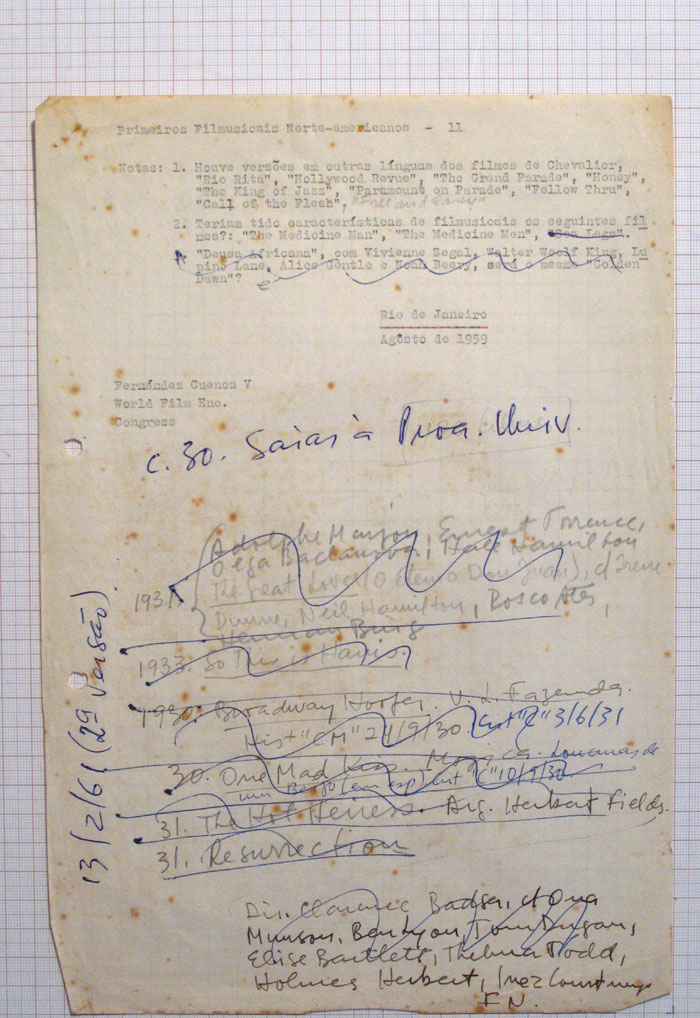 Primeiros Filmusicais Norte-americanos - 11
Notas: 1. Houve versões em outras línguas dos filmes de Chevalier,
"Rio Rita", "Hollywood Revue", "The Grand Parade", "Honey",
"The King of Jazz", "Paramount on Parade", "Follow Thru",
"Call of the Flesh", "Free and Easy"
2. Teriam tido características de filmusicais os seguintes fil
mes?: "The Medicine Man", "The Medicine Men", "Sea Legs".
"Deusa Africana", com Vivienne Segal, Walter Woolf King, Lu
pino Lane, Alice Gentle e Noah Beery, será o mesmo "Golden
Dawn"?
Rio de Janeiro
Agôsto de 1959
Fernández Cuenca V
World Film Enc.
Congress
c. 30. Saias à Proa. Univ.
Adolphe Menjou, Ernest Torrence,
Olga Baclanova, Hale Hamilton
1931. The Great Lover (O Eterno Don Juan), c/ Irene
Dunne, Neil Hamilton, Rosco Ates,
Herman Bing
1933. So This is Harris.
1930. Broadway Hoofer. V. L. Fazenda.
Hist "CM" 24/9/30 "C" 3/6/31
30. One Mad Kiss. Mojica.
"C" 10/9/30
31. The Hot Heiress. Arg. Herbert Fields.
31. Resurrection
Dir. Clarence Badger, c/ Ona
Munson, Ben Lyon, Tom Dugan,
Elise Bartlett, Thelma Todd,
Holmes Herbert, Inez Courtney
F N.
13/2/61 (2ª Versão).